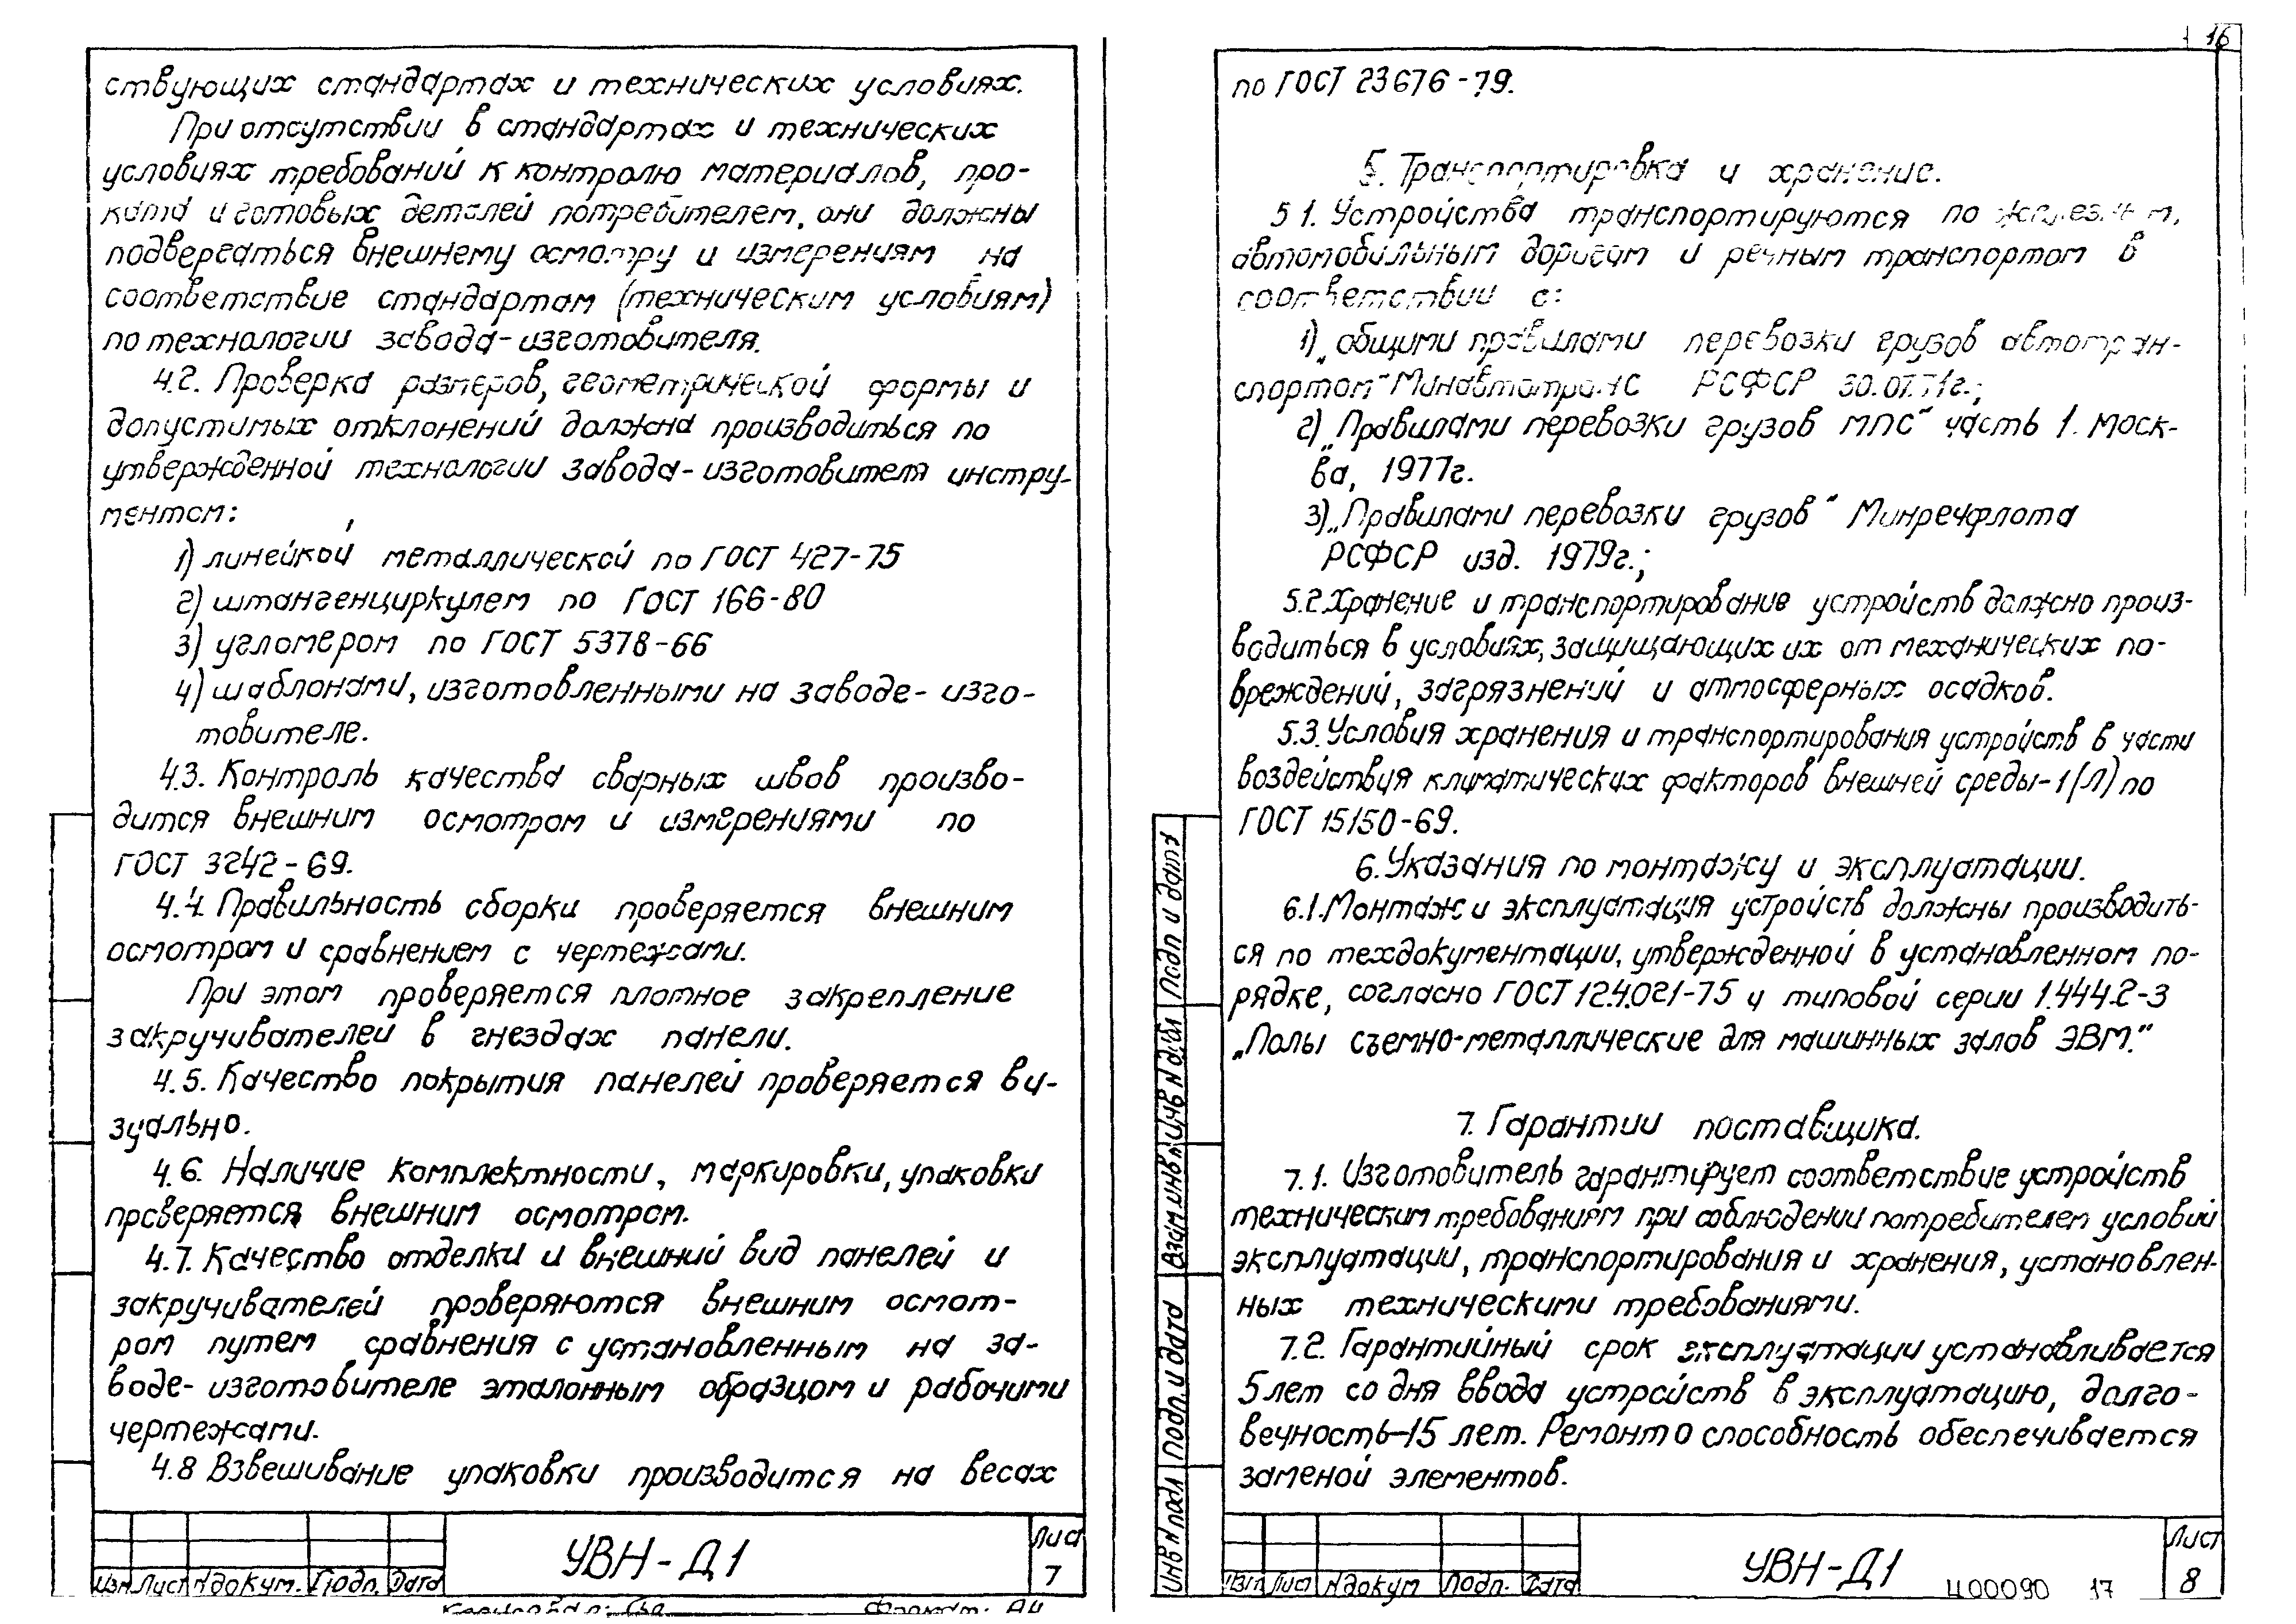 ствующих стандартах и технических условиях.
При отсутствии в стандартах и технических
условиях требований к контролю материалов, про-
ката и готовых деталей потребителем, они должны
подвергаться внешнему осмотру и измерениям на
соответствие стандартам (техническим условиям)
по технологии завода-изготовителя.
4.2. Проверка размеров, геометрической формы и
допустимых отклонений должна производиться по
утвержденной технологии завода-изготовителя инстру-
ментом:
1) линейкой металлической по ГОСТ 427-75
2) штангенциркулем по ГОСТ 166-80
3) угломером по ГОСТ 5378-66
4) шаблонами, изготовленными на заводе-изго-
товителе.
4.3. Контроль качества сварных швов произво-
дится внешним осмотром и измерениями по
ГОСТ 3242-69.
4.4. Правильность сборки проверяется внешним
осмотром и сравнением с чертежами.
При этом проверяется плотное закрепление
закручивателей в гнездах панели.
4.5. Качество покрытия панелей проверяется ви-
зуально.
4.6. Наличие комплектности, маркировки, упаковки
проверяется внешним осмотром.
4.7. Качество отделки и внешний вид панелей и
закручивателей проверяются внешним осмот-
ром путем сравнения с установленным на за-
воде-изготовителе эталонным образцом и рабочими
чертежами.
4.8 Взвешивание упаковки производится на весах
УВН-Д1
Лист
7
Изм Лист N докум. Подп. Дата
Формат: А4
16
по ГОСТ 23676-79.
5. Транспортировка и хранение.
5 1. Устройства транспортируются по железным,
автомобильным дорогам и речным транспортом в
соответствии с:
1) „общими правилами перевозки грузов автотран-
спортом“ Минавтотранс РСФСР 30.07.71г.;
2) „Правилами перевозки грузов МПС“ часть 1. Моск-
ва, 1977г.
3) „Правилами перевозки грузов“ Минречфлота
РСФСР изд. 1979г.;
5.2. Хранение и транспортирование устройств должно произ-
водиться в условиях, защищающих их от механических по-
вреждений, загрязнений и атмосферных осадков.
5.3. Условия хранения и транспортирования устройств в части
воздействия климатических факторов внешней среды-1(Л) по
ГОСТ 15150-69.
6. Указания по монтажу и эксплуатации.
6.1. Монтаж и эксплуатация устройств должны производить-
ся по техдокументации, утвержденной в установленном по-
рядке, согласно ГОСТ 12.4.021-75 и типовой серии 1.444.2-3
„Полы съемно-металлические для машинных залов ЭВМ.“
7. Гарантии поставщика.
7.1. Изготовитель гарантирует соответствие устройств
техническим требованиям при соблюдении потребителем условий
эксплуатации, транспортирования и хранения, установлен-
ных техническими требованиями.
7.2. Гарантийный срок эксплуатации устанавливается
5 лет со дня ввода устройств в эксплуатацию, долго-
вечность-15 лет. Ремонтоспособность обеспечивается
заменой элементов.
Инв N подл Подп. и дата Взам инв N Инв N дубл Подп и дата
УВН-Д1
Лист
8
Изм Лист N докум Подп. Дата
Ц00090 17